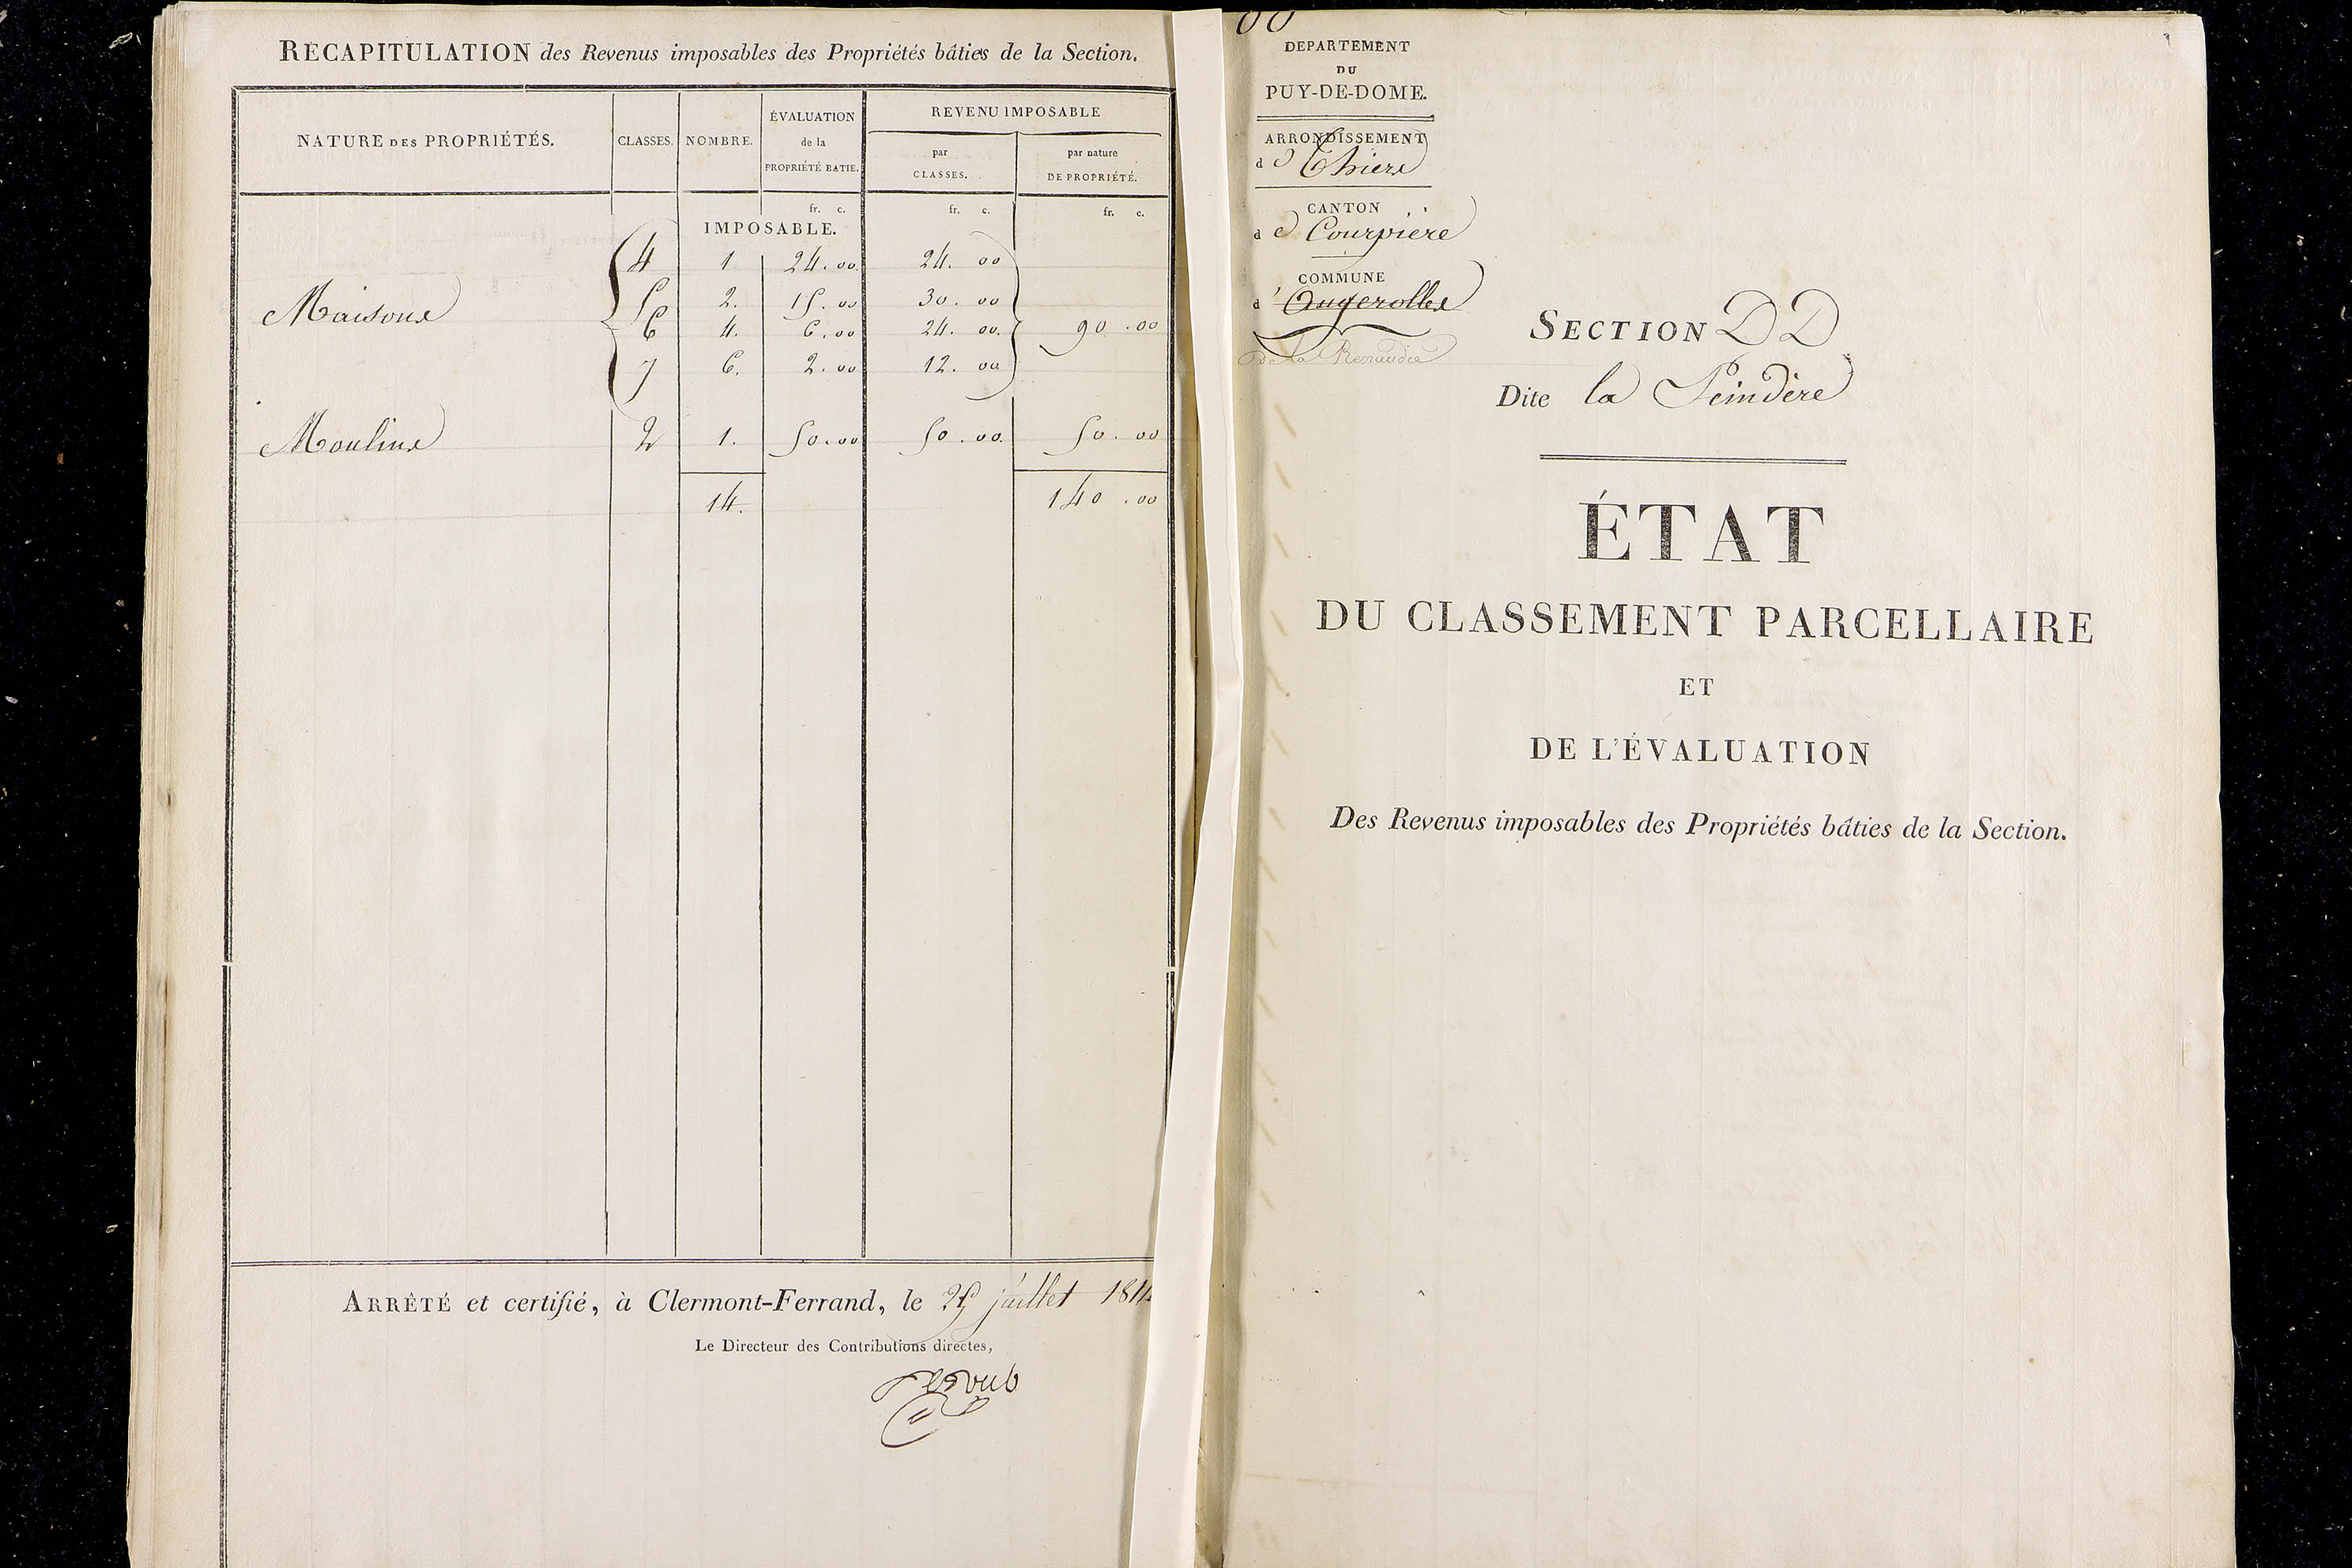 RÉCAPITULATION des Revenus imposables des Propriétés bâties de la Section.
NATURE DES PROPRIÉTÉS. CLASSES. NOMBRE. ÉVALUATION de la PROPRIÉTÉ BATIE. REVENU IMPOSABLE
par CLASSES. par nature DE PROPRIÉTÉ.
fr. c. fr. c. fr. c.
IMPOSABLE.
4 1. 24.00. 24. 00
Maisons 5 2. 15.00 30. 00
6 4. 6.00 24. 00. 90.00
7 6. 2.00 12. 00
Moulins 2 1. 50.00 50.00. 50.00
14. 140.00
ARRÊTÉ et certifié, à Clermont-Ferrand, le 25 juillet
Le Directeur des Contributions directes,
DEPARTEMENT
DU
PUY-DE-DOME.
ARRONDISSEMENT
de Thiers
CANTON
de Courpière
COMMUNE
d'Augerolles
De la Renaudie
SECTION DD
Dite la
ÉTAT
DU CLASSEMENT PARCELLAIRE
ET
DE L'ÉVALUATION
Des Revenus imposables des Propriétés bâties de la Section.